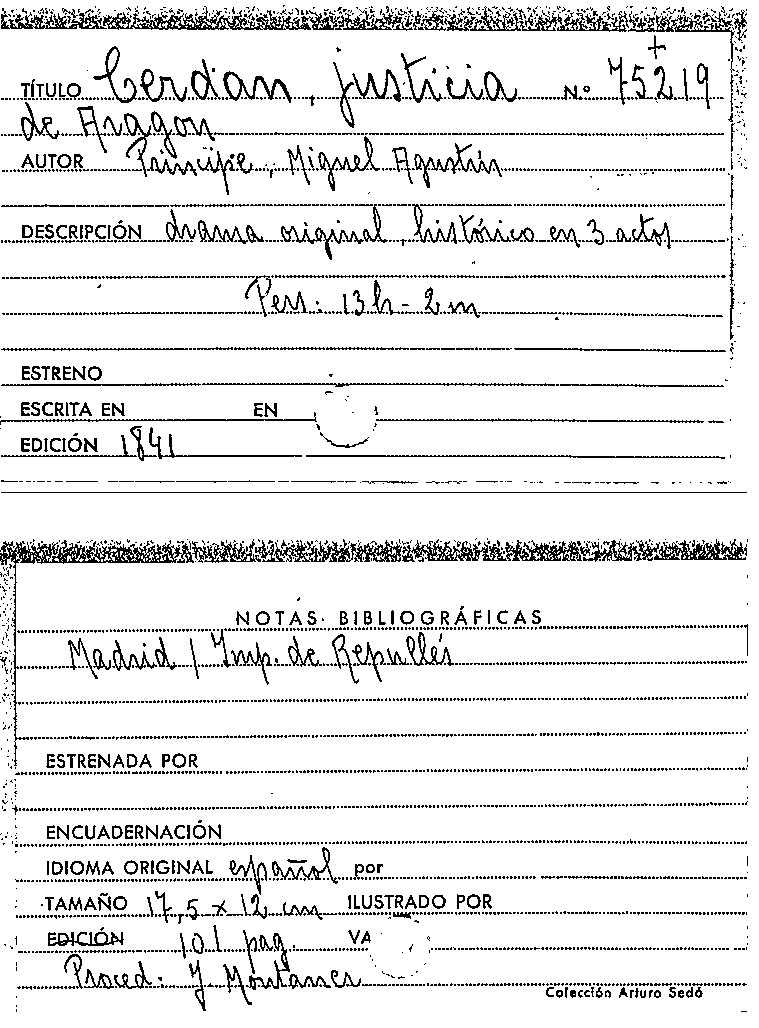 TÍTULO Cerdan, justicia N.º 75219
+
de Aragon
AUTOR Principe, Miguel Agustín
DESCRIPCIÓN drama original, histórico en 3 actos
Pers: 13 h - 2 m
ESTRENO
ESCRITA EN EN
EDICIÓN 1841
NOTAS BIBLIOGRÁFICAS
Madrid / Imp. de Repullés
ESTRENADA POR
ENCUADERNACIÓN
IDIOMA ORIGINAL español por
TAMAÑO 17,5 x 12 cm ILUSTRADO POR
EDICIÓN 101 pag. VA
Proced: J. Montanes
Colección Arturo Sedó